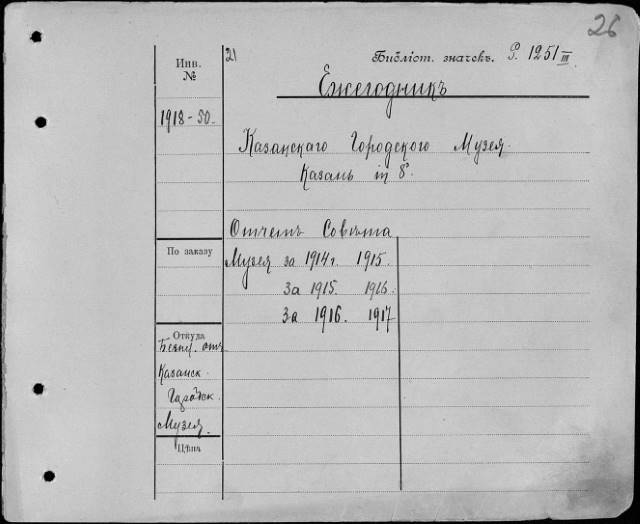 26
Инв. №
21
Библіот. значекъ. P. 1251 III
Ежегодникъ
1918-50.
Казанскаго Городского Музея.
Казань in 8°.
Отчетъ Совѣта
По заказу
Музея за 1914 г. 1915.
За 1915. 1916.
За 1916. 1917
Откуда
Безпл. отъ
Казанск.
Городск.
Музея.
Цѣна